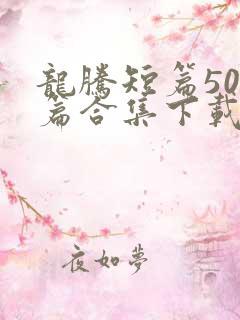 龍騰短篇50
篇合集下載
夜如夢